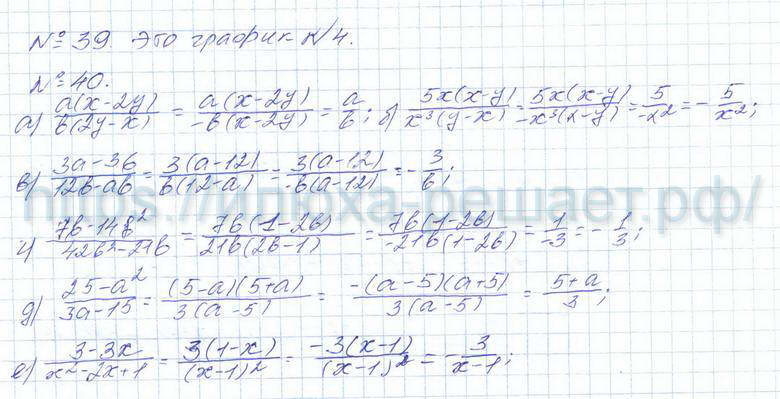 № 39. Это график №4.
№ 40.
а) a(x-2y)/b(2y-x) = a(x-2y)/-b(x-2y) = a/b; б) 5x(x-y)/x³(y-x) = 5x(x-y)/-x³(x-y) = 5/-x² = -5/x²;
в) 3a-36/12b-ab = 3(a-12)/b(12-a) = 3(a-12)/-b(a-12) = -3/b;
https://илюха-решает.рф/
ч) 7b-14b²/42b²-21b = 7b(1-2b)/21b(2b-1) = 7b(1-2b)/-21b(1-2b) = 1/-3 = -1/3;
д) 25-a²/3a-15 = (5-a)(5+a)/3(a-5) = -(a-5)(a+5)/3(a-5) = 5+a/3;
е) 3-3x/x²-2x+1 = 3(1-x)/(x-1)² = -3(x-1)/(x-1)² = -3/x-1;